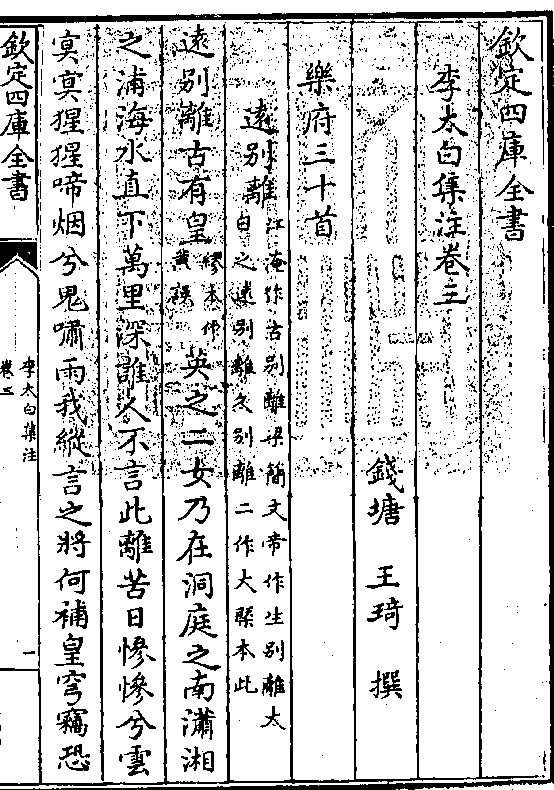 欽定四庫全書
李太白集注卷三
錢塘 王琦 撰
樂府三十首
逺别離
江淹作古别離梁簡文帝作生别離太
白之逺别離久别離二作大槩本此
逺别離古有皇
繆本作
黄誤
英之二女乃在洞庭之南瀟湘
之浦海水直下萬里深誰人不言此離苦日慘慘兮雲
㝠㝠猩猩啼烟兮鬼嘯雨我縱言之將何補皇穹竊恐
欽定四庫全書
李太白集注
卷三
一